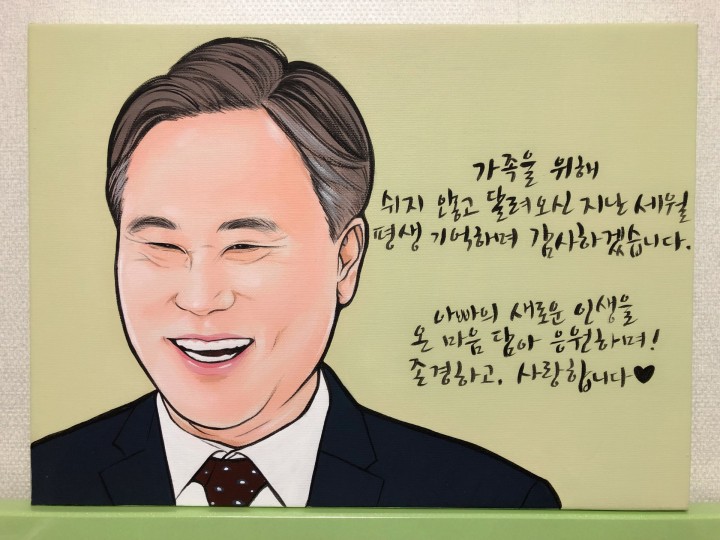 가족을 위해
쉬지 않고 달려오신 지난 세월
평생 기억하며 감사하겠습니다.
아빠의 새로운 인생을
온 마음 담아 응원하며!
존경하고, 사랑합니다♥